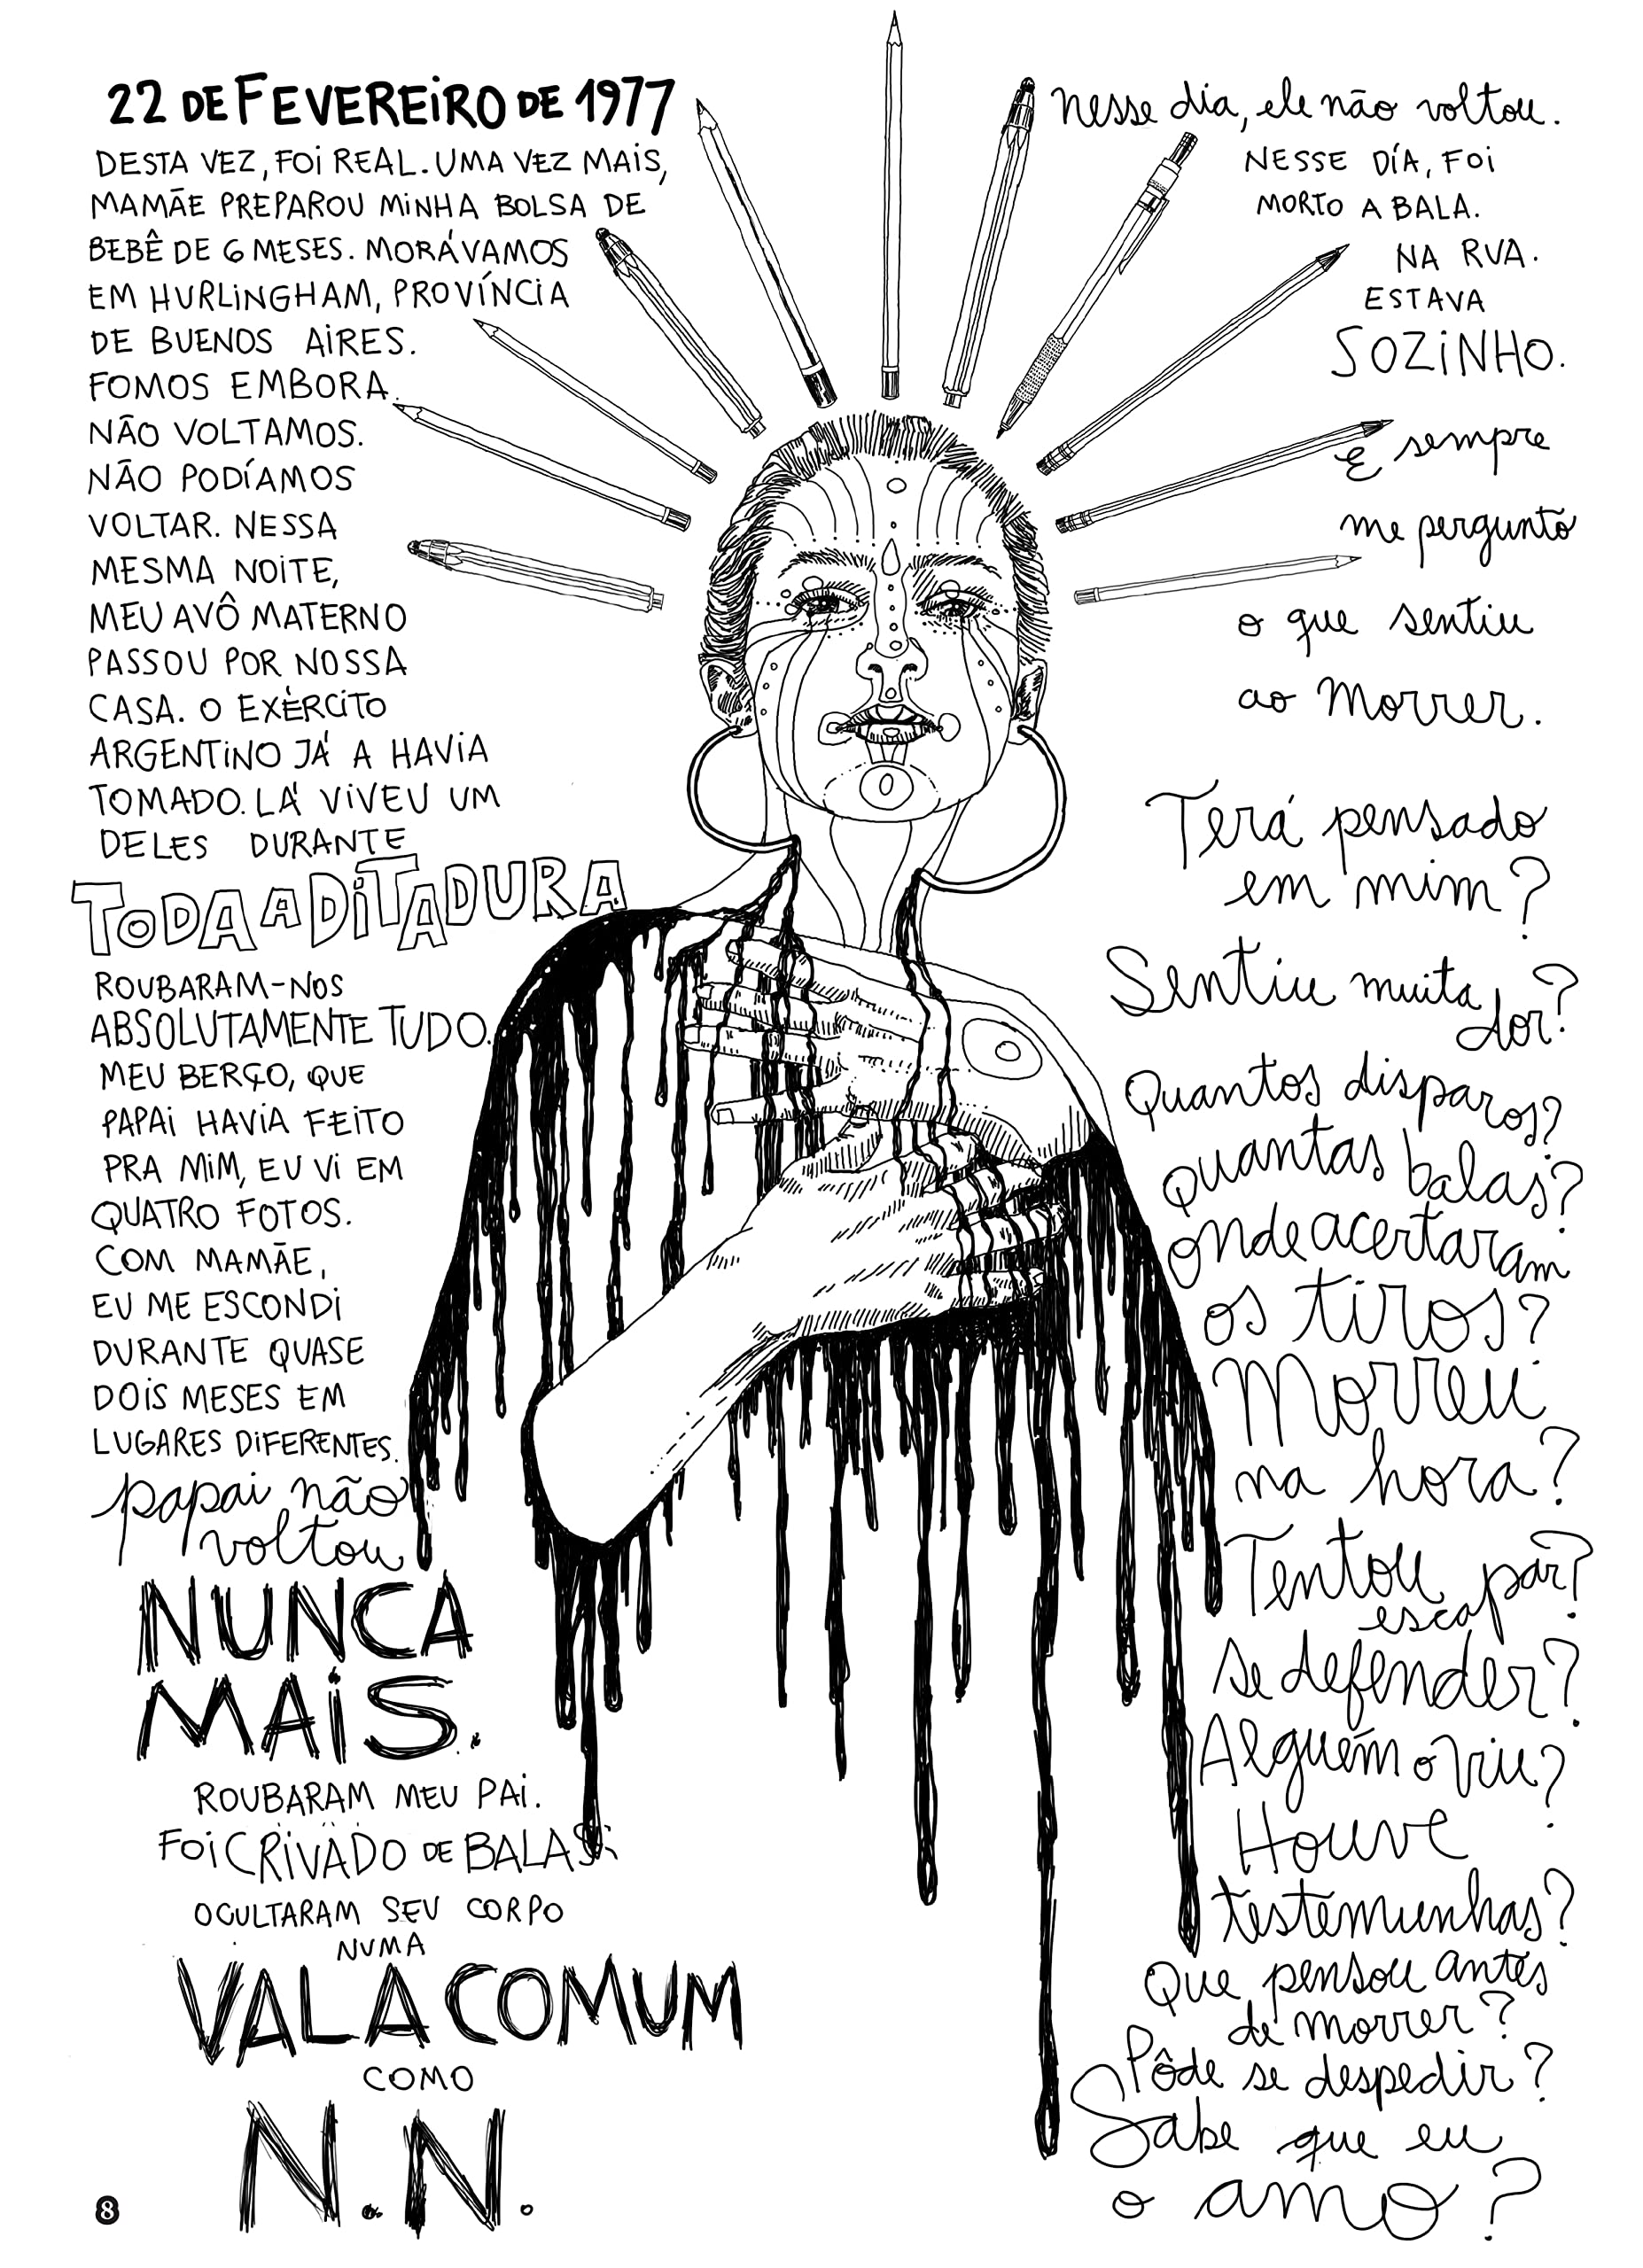 22 DE FEVEREIRO DE 1977
DESTA VEZ, FOI REAL. UMA VEZ MAIS,
MAMÃE PREPAROU MINHA BOLSA DE
BEBÊ DE 6 MESES. MORÁVAMOS
EM HURLINGHAM, PROVÍNCIA
DE BUENOS AIRES.
FOMOS EMBORA.
NÃO VOLTAMOS.
NÃO PODÍAMOS
VOLTAR. NESSA
MESMA NOITE,
MEU AVÔ MATERNO
PASSOU POR NOSSA
CASA. O EXÉRCITO
ARGENTINO JÁ A HAVIA
TOMADO. LÁ VIVEU UM
DELES DURANTE
TODA A DITADURA
ROUBARAM-NOS
ABSOLUTAMENTE TUDO.
MEU BERÇO, QUE
PAPAI HAVIA FEITO
PRA MIM, EU VI EM
QUATRO FOTOS.
COM MAMÃE,
EU ME ESCONDI
DURANTE QUASE
DOIS MESES EM
LUGARES DIFERENTES.
papai não
voltou
NUNCA
MAIS.
ROUBARAM MEU PAI.
FOI CRIVADO DE BALAS;
OCULTARAM SEU CORPO
NUMA
VALA COMUM
COMO
N.N.
Nesse dia, ele não voltou.
NESSE DÍA, FOI
MORTO A BALA.
NA RUA.
ESTAVA
SOZINHO.
E sempre
me pergunto
o que sentiu
ao Morrer.
Terá pensado
em mim?
Sentiu muita
dor?
Quantos disparos?
quantas balas?
onde acertaram
os tiros?
Morreu
na hora?
Tentou
escapar?
se defender?
Alguém o viu?
Houve
testemunhas?
Que pensou antes
de morrer?
Pôde se despedir?
Sabe que eu
o amo?
8